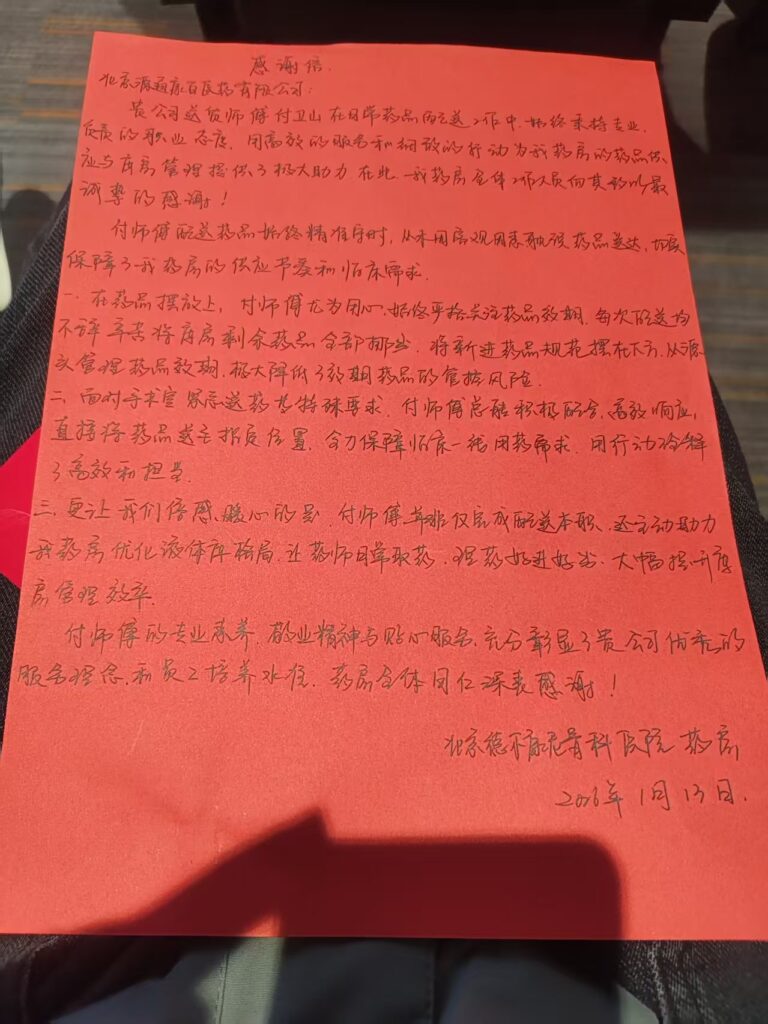 感谢信.
北京源通康百医药有限公司:
贵公司送货师傅付卫山在日常药品配送工作中,始终秉持专业、
负责的职业态度,用高效的服务和细致的行动为我药房的药品供
应与库房管理提供了极大助力.在此,我药房全体工作人员向其致以最
诚挚的感谢!
付师傅配送药品始终精准守时,从未因客观因素耽误药品送达,切实
保障了我药房的供应节奏和临床需求.
一.在药品摆放上,付师傅尤为用心,始终严格关注药品效期.每次配送均
不辞辛苦将库房剩余药品全部挪出,将新进药品规范摆在下方,从源
头管理药品效期,极大降低了效期药品的管控风险.
二.面对手术室紧急送药等特殊要求,付师傅总能积极配合,高效响应,
直接将药品送至指定位置,全力保障临床一线用药需求,用行动诠释
了高效和担当.
三.更让我们倍感暖心的是,付师傅并非仅完成配送本职,还主动助力
我药房优化液体库格局,让药师日常取药、理药好进好出,大幅提升库
房管理效率.
付师傅的专业素养、敬业精神与贴心服务,充分彰显了贵公司优秀的
服务理念和员工培养水准.药房全体同仁深表感谢!
北京德尔康尼骨科医院药房
2026年1月13日.